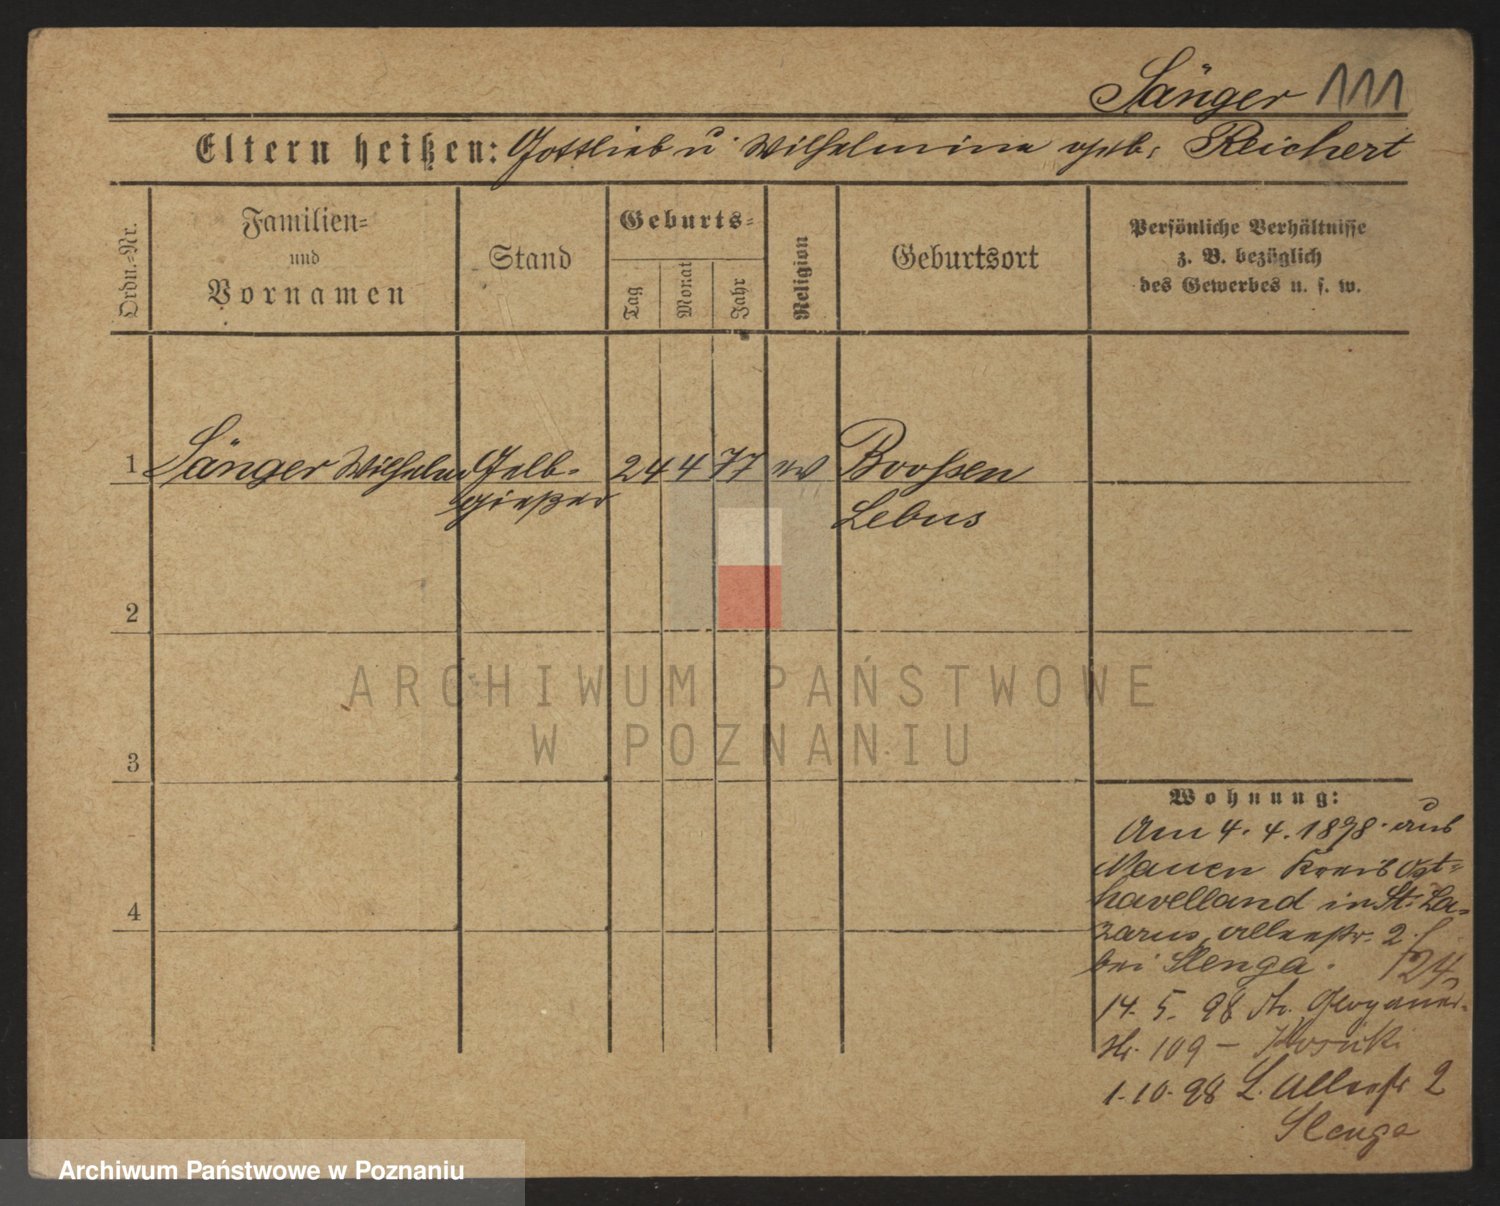 Sänger 111
Eltern heißen: Gottlieb u Wilhelmine geb. Reichert
Ordn.-Nr.
Familien-
und
Vornamen
Stand
Geburts-
Tag
Monat
Jahr
Religion
Geburtsort
Persönliche Verhältnisse
z. B. bezüglich
des Gewerbes u. s. w.
1 Sänger Wilhelm Gelb- 24 4 77 ev Boossen
gießer Lebus
2
ARCHIWUM PAŃSTWOWE
W POZNANIU
3
Wohnung:
Am 4. 4. 1898 aus
Nauen Kreis Ost-
4
havelland in St. La-
zarus, Alleestr. 2
bei Slenga. 124
14. 5. 98 Glogauer-
str. 109 –
1. 10. 98 L. Alleestr 2
Slenga
Archiwum Państwowe w Poznaniu